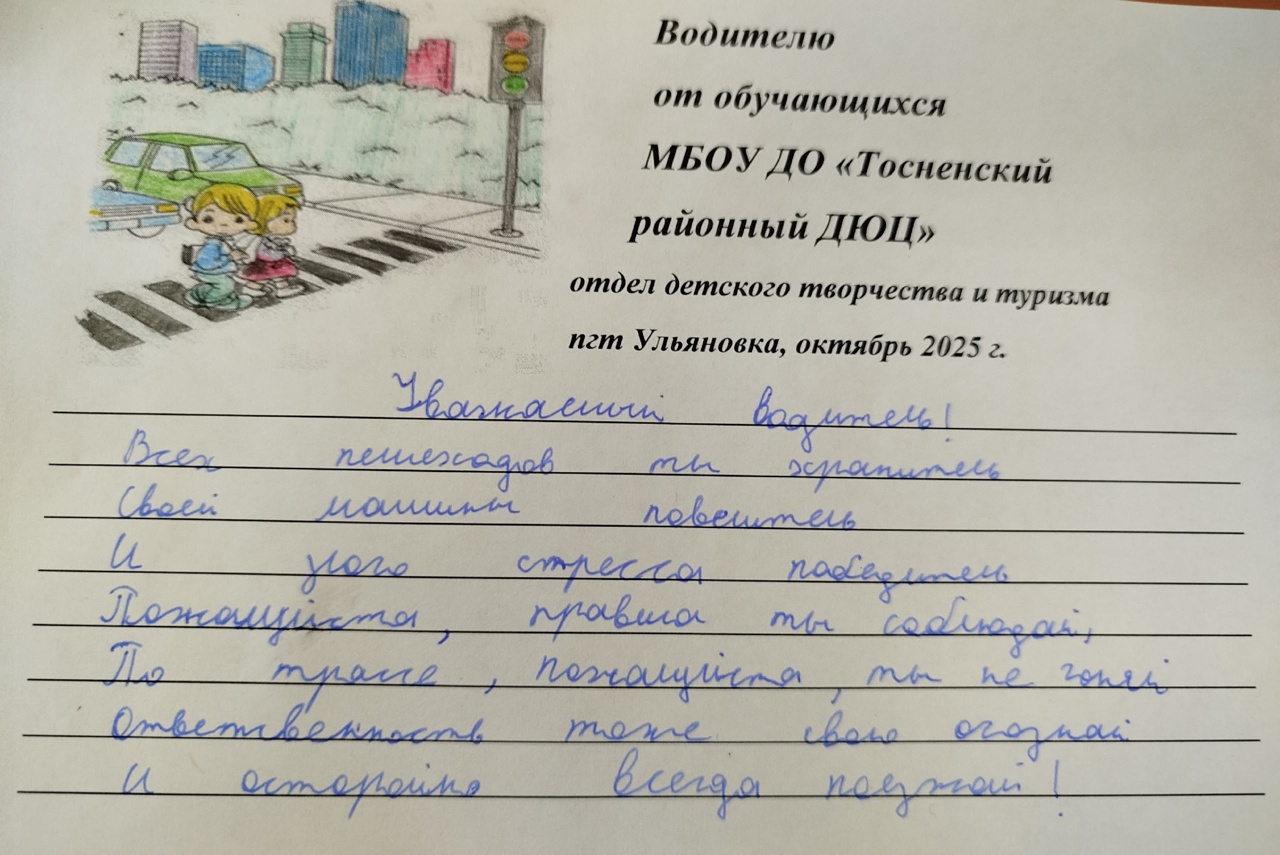 Водителю
от обучающихся
МБОУ ДО «Тосненский
районный ДЮЦ»
отдел детского творчества и туризма
пгт Ульяновка, октябрь 2025 г.
Уважаемый водитель!
Всех пешеходов ты хранитель
Своей машины повелитель
И злого стресса победитель
Пожалуйста, правила ты соблюдай,
По трассе, пожалуйста, ты не гоняй
Ответственность тоже свою осознай
И осторожно всегда поезжай!